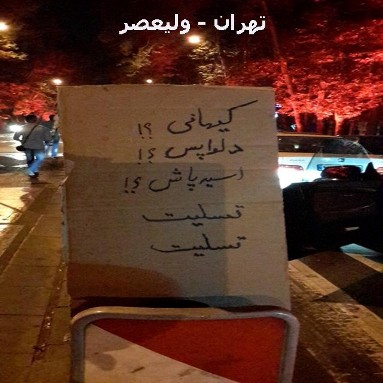 تهران - ولیعصر
کیهانی ؟!
دلواپس ؟!
اسیدپاش ؟!
تسلیت
تسلیت